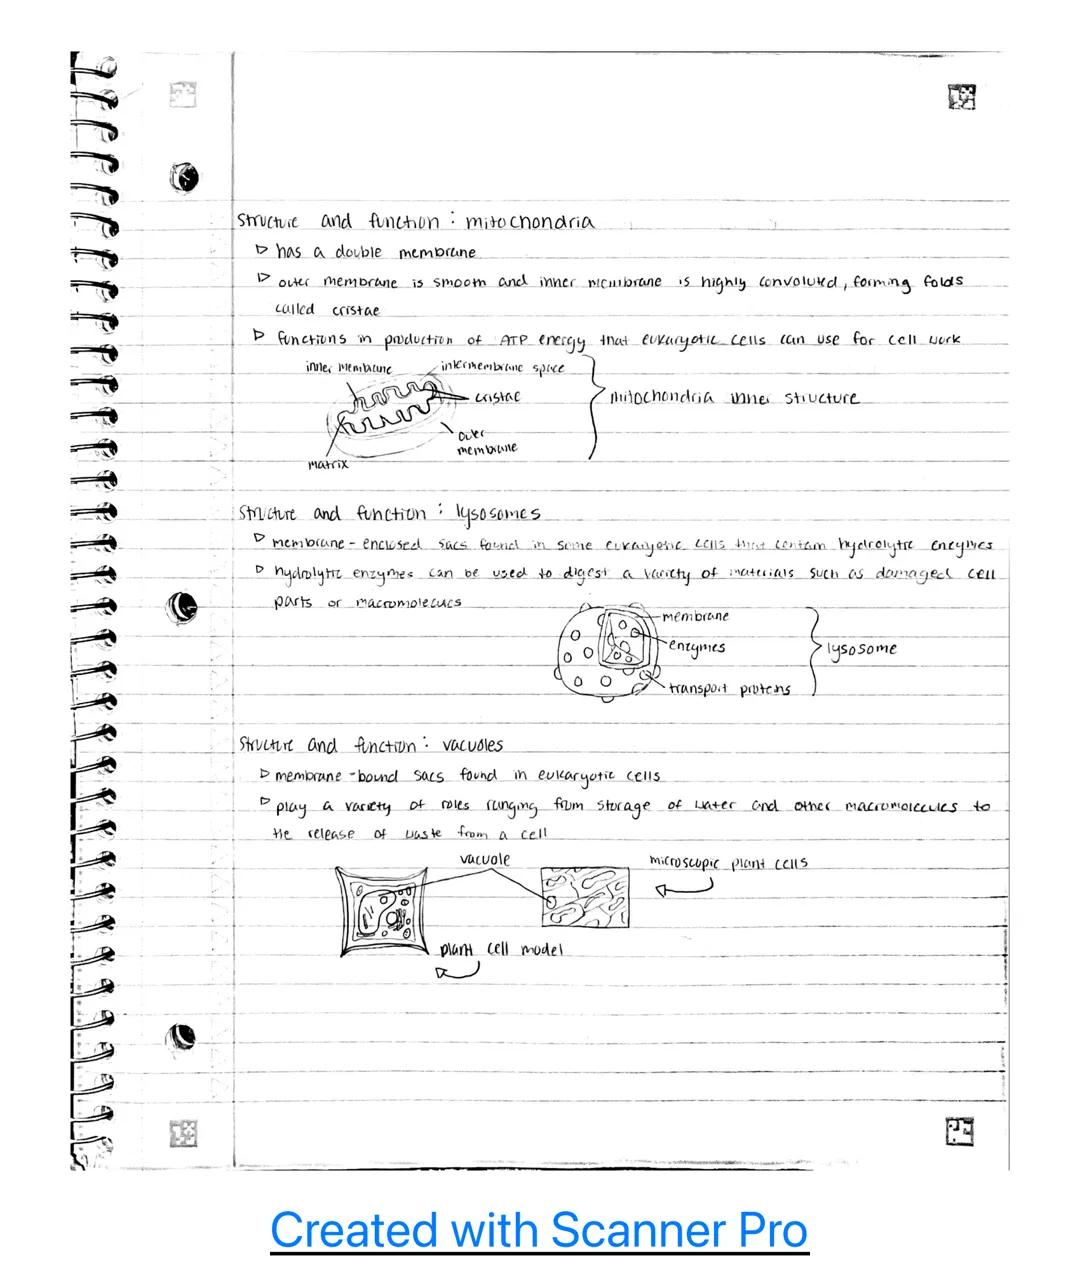 structure and function : mitochondria
▷ has a double membrane
▷ outer membrane is smooth and inner membrane is highly convoluted, forming folds
called cristae
▷ functions in production of ATP energy that eukaryotic cells can use for cell work
inner membrane
intermembrane space
cristae
mitochondria inner structure
outer
membrane
matrix
structure and function : lysosomes
▷ membrane-enclosed sacs found in some eukaryotic cells that contain hydrolytic enzymes
▷ hydrolytic enzymes can be used to digest a variety of materials such as damaged cell
parts or macromolecules
membrane
enzymes
lysosome
transport proteins
structure and function : vacuoles
▷ membrane-bound sacs found in eukaryotic cells
▷ play a variety of roles ranging from storage of water and other macromolecules to
the release of waste from a cell
vacuole
microscopic plant cells
plant cell model
Created with Scanner Pro